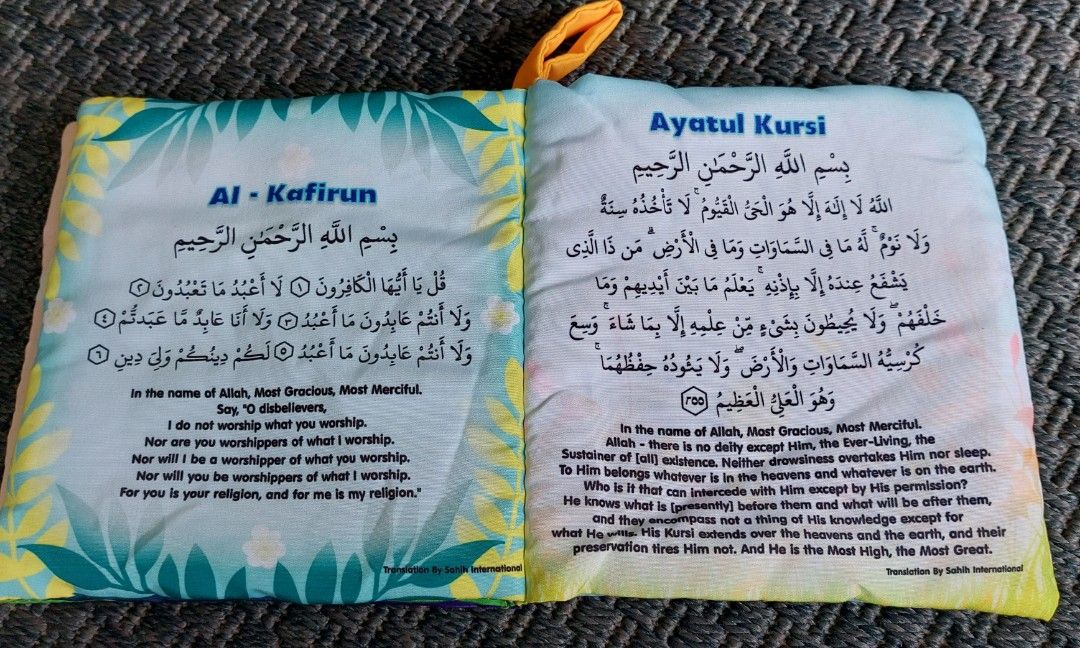 Al - Kafirun
بِسْمِ اللَّهِ الرَّحْمَٰنِ الرَّحِيمِ
قُلْ يَا أَيُّهَا الْكَافِرُونَ ١ لَا أَعْبُدُ مَا تَعْبُدُونَ ٢
وَلَا أَنتُمْ عَابِدُونَ مَا أَعْبُدُ ٣ وَلَا أَنَا عَابِدٌ مَّا عَبَدتُّمْ ٤
وَلَا أَنتُمْ عَابِدُونَ مَا أَعْبُدُ ٥ لَكُمْ دِينُكُمْ وَلِيَ دِينِ ٦
In the name of Allah, Most Gracious, Most Merciful.
Say, "O disbelievers,
I do not worship what you worship.
Nor are you worshippers of what I worship.
Nor will I be a worshipper of what you worship.
Nor will you be worshippers of what I worship.
For you is your religion, and for me is my religion."
Translation By Sahih International
Ayatul Kursi
بِسْمِ اللَّهِ الرَّحْمَٰنِ الرَّحِيمِ
اللَّهُ لَا إِلَٰهَ إِلَّا هُوَ الْحَيُّ الْقَيُّومُ ۚ لَا تَأْخُذُهُ سِنَةٌ
وَلَا نَوْمٌ ۚ لَّهُ مَا فِي السَّمَاوَاتِ وَمَا فِي الْأَرْضِ ۗ مَن ذَا الَّذِي
يَشْفَعُ عِندَهُ إِلَّا بِإِذْنِهِ ۚ يَعْلَمُ مَا بَيْنَ أَيْدِيهِمْ وَمَا
خَلْفَهُمْ ۖ وَلَا يُحِيطُونَ بِشَيْءٍ مِّنْ عِلْمِهِ إِلَّا بِمَا شَاءَ ۚ وَسِعَ
كُرْسِيُّهُ السَّمَاوَاتِ وَالْأَرْضَ ۖ وَلَا يَئُودُهُ حِفْظُهُمَا ۚ
وَهُوَ الْعَلِيُّ الْعَظِيمُ ٢٥٥
In the name of Allah, Most Gracious, Most Merciful.
Allah - there is no deity except Him, the Ever-Living, the
Sustainer of [all] existence. Neither drowsiness overtakes Him nor sleep.
To Him belongs whatever is in the heavens and whatever is on the earth.
Who is it that can intercede with Him except by His permission?
He knows what is [presently] before them and what will be after them,
and they encompass not a thing of His knowledge except for
what He wills. His Kursi extends over the heavens and the earth, and their
preservation tires Him not. And He is the Most High, the Most Great.
Translation By Sahih International